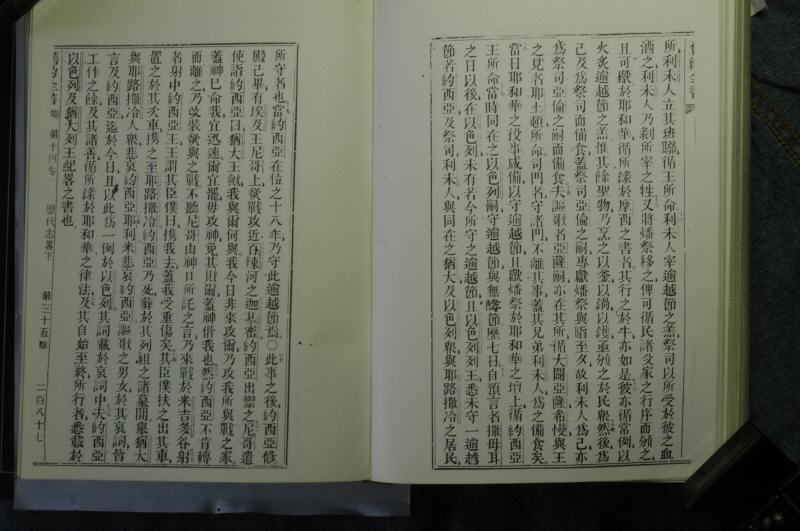 所、利未人立其班職、循王所命、利未人宰逾越節之羔、祭司以所受於彼之血
洒之、利未人乃剝所宰之牲、又將燔祭移之、俾可循民諸父家之行序而頒之、
且可獻於耶和華、循所錄於摩西之書者、其行之於牛亦如是、彼亦循常例、以
火炙逾越節之羔、惟其餘聖物乃烹之以釜以鍋以鑊、亟頒之於民衆、然後爲
己及爲祭司而備食、蓋祭司亞倫之嗣、專獻燔祭與脂至夕、故利未人爲己亦
爲祭司亞倫之嗣而備食、夫謳歌者亞薩嗣、亦在其所、循大闢亞薩希慢與王
之見者耶土頓所命、司門者守諸門、不離其事、蓋其兄弟利未人爲之備食矣、
當日耶和華之役事咸備、以守逾越節、且獻燔祭於耶和華之壇上、循約西亞
王所命、當時同在之以色列嗣守逾越節、與無酵節、歷七日、自預言者撒母耳
之日以後、在以色列未有若今所守之逾越節、且以色列列王悉未守一逾越
節、若約西亞及祭司利未人、與同在之猶大及以色列衆、與耶路撒冷之居民
所守者也、當約西亞在位之十八年、乃守此逾越節焉、○此事之後、約西亞修
殿已畢、有埃及王尼哥上、欲攻近百辣河之迦基密、約西亞出禦之、尼哥遣
使詣約西亞曰、猶大王歟、我與爾何與、我今日非來攻爾、乃攻我所與戰之家、
蓋神已命我宜迅速、爾宜罷、毋攻神、免其戕爾、蓋神偕我也、然約西亞不肯轉
而離之、乃改裝欲與之戰、不聽尼哥由神口所託之言、乃來戰於米吉多谷、射
者射中約西亞王、王謂其臣僕曰、攜我去、蓋我受重傷矣、其臣僕扶之出其車、
置之於其次車、攜之至耶路撒冷、約西亞乃死、葬於其列祖之諸墓間、舉猶大
與耶路撒冷人衆悲哀約西亞、耶利米悲哀約西亞、謳歌之男女、於其哀詞皆
言及約西亞、迄於今日、且以此爲一例於以色列、其詞載於哀詞中、夫約西亞
工作之餘、及其諸善、循所錄於耶和華之律法、及其自始至終所行者、悉載於
以色列及猶大列王紀畧之書也、
舊約全書 第十四卷 歷代志畧下 第三十五章 一百八十七